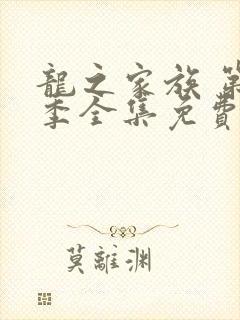 龍之家族 第
季全集免費
莫離渊